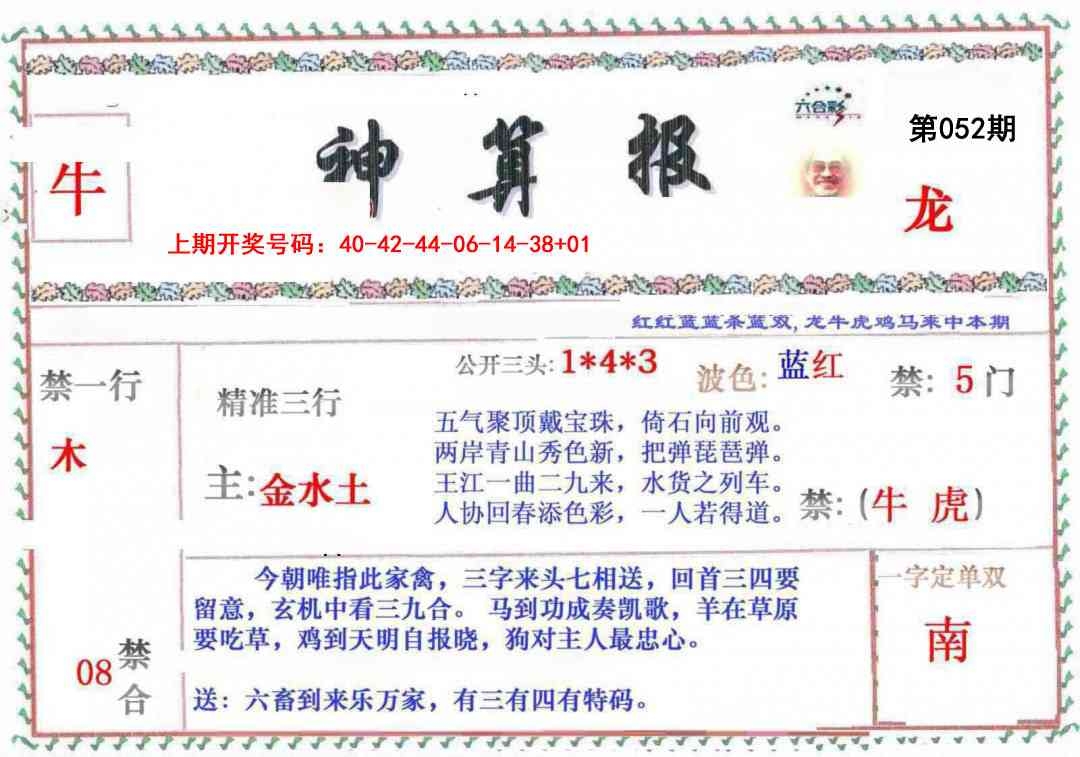 六合彩
第052期
神算报
牛
龙
上期开奖号码：40-42-44-06-14-38+01
红红蓝蓝条蓝双,龙牛虎鸡马来中本期
禁一行
木
精准三行
主:金水土
公开三头:1*4*3
波色:蓝红
禁:5门
五气聚顶戴宝珠，倚石向前观。
两岸青山秀色新，把弹琵琶弹。
王江一曲二九来，水货之列车。
人协回春添色彩，一人若得道。
禁:(牛 虎)
今朝唯指此家禽，三字来头七相送，回首三四要
留意，玄机中看三九合。 马到功成奏凯歌，羊在草原
要吃草，鸡到天明自报晓，狗对主人最忠心。
送：六畜到来乐万家，有三有四有特码。
08禁合
一字定单双
南